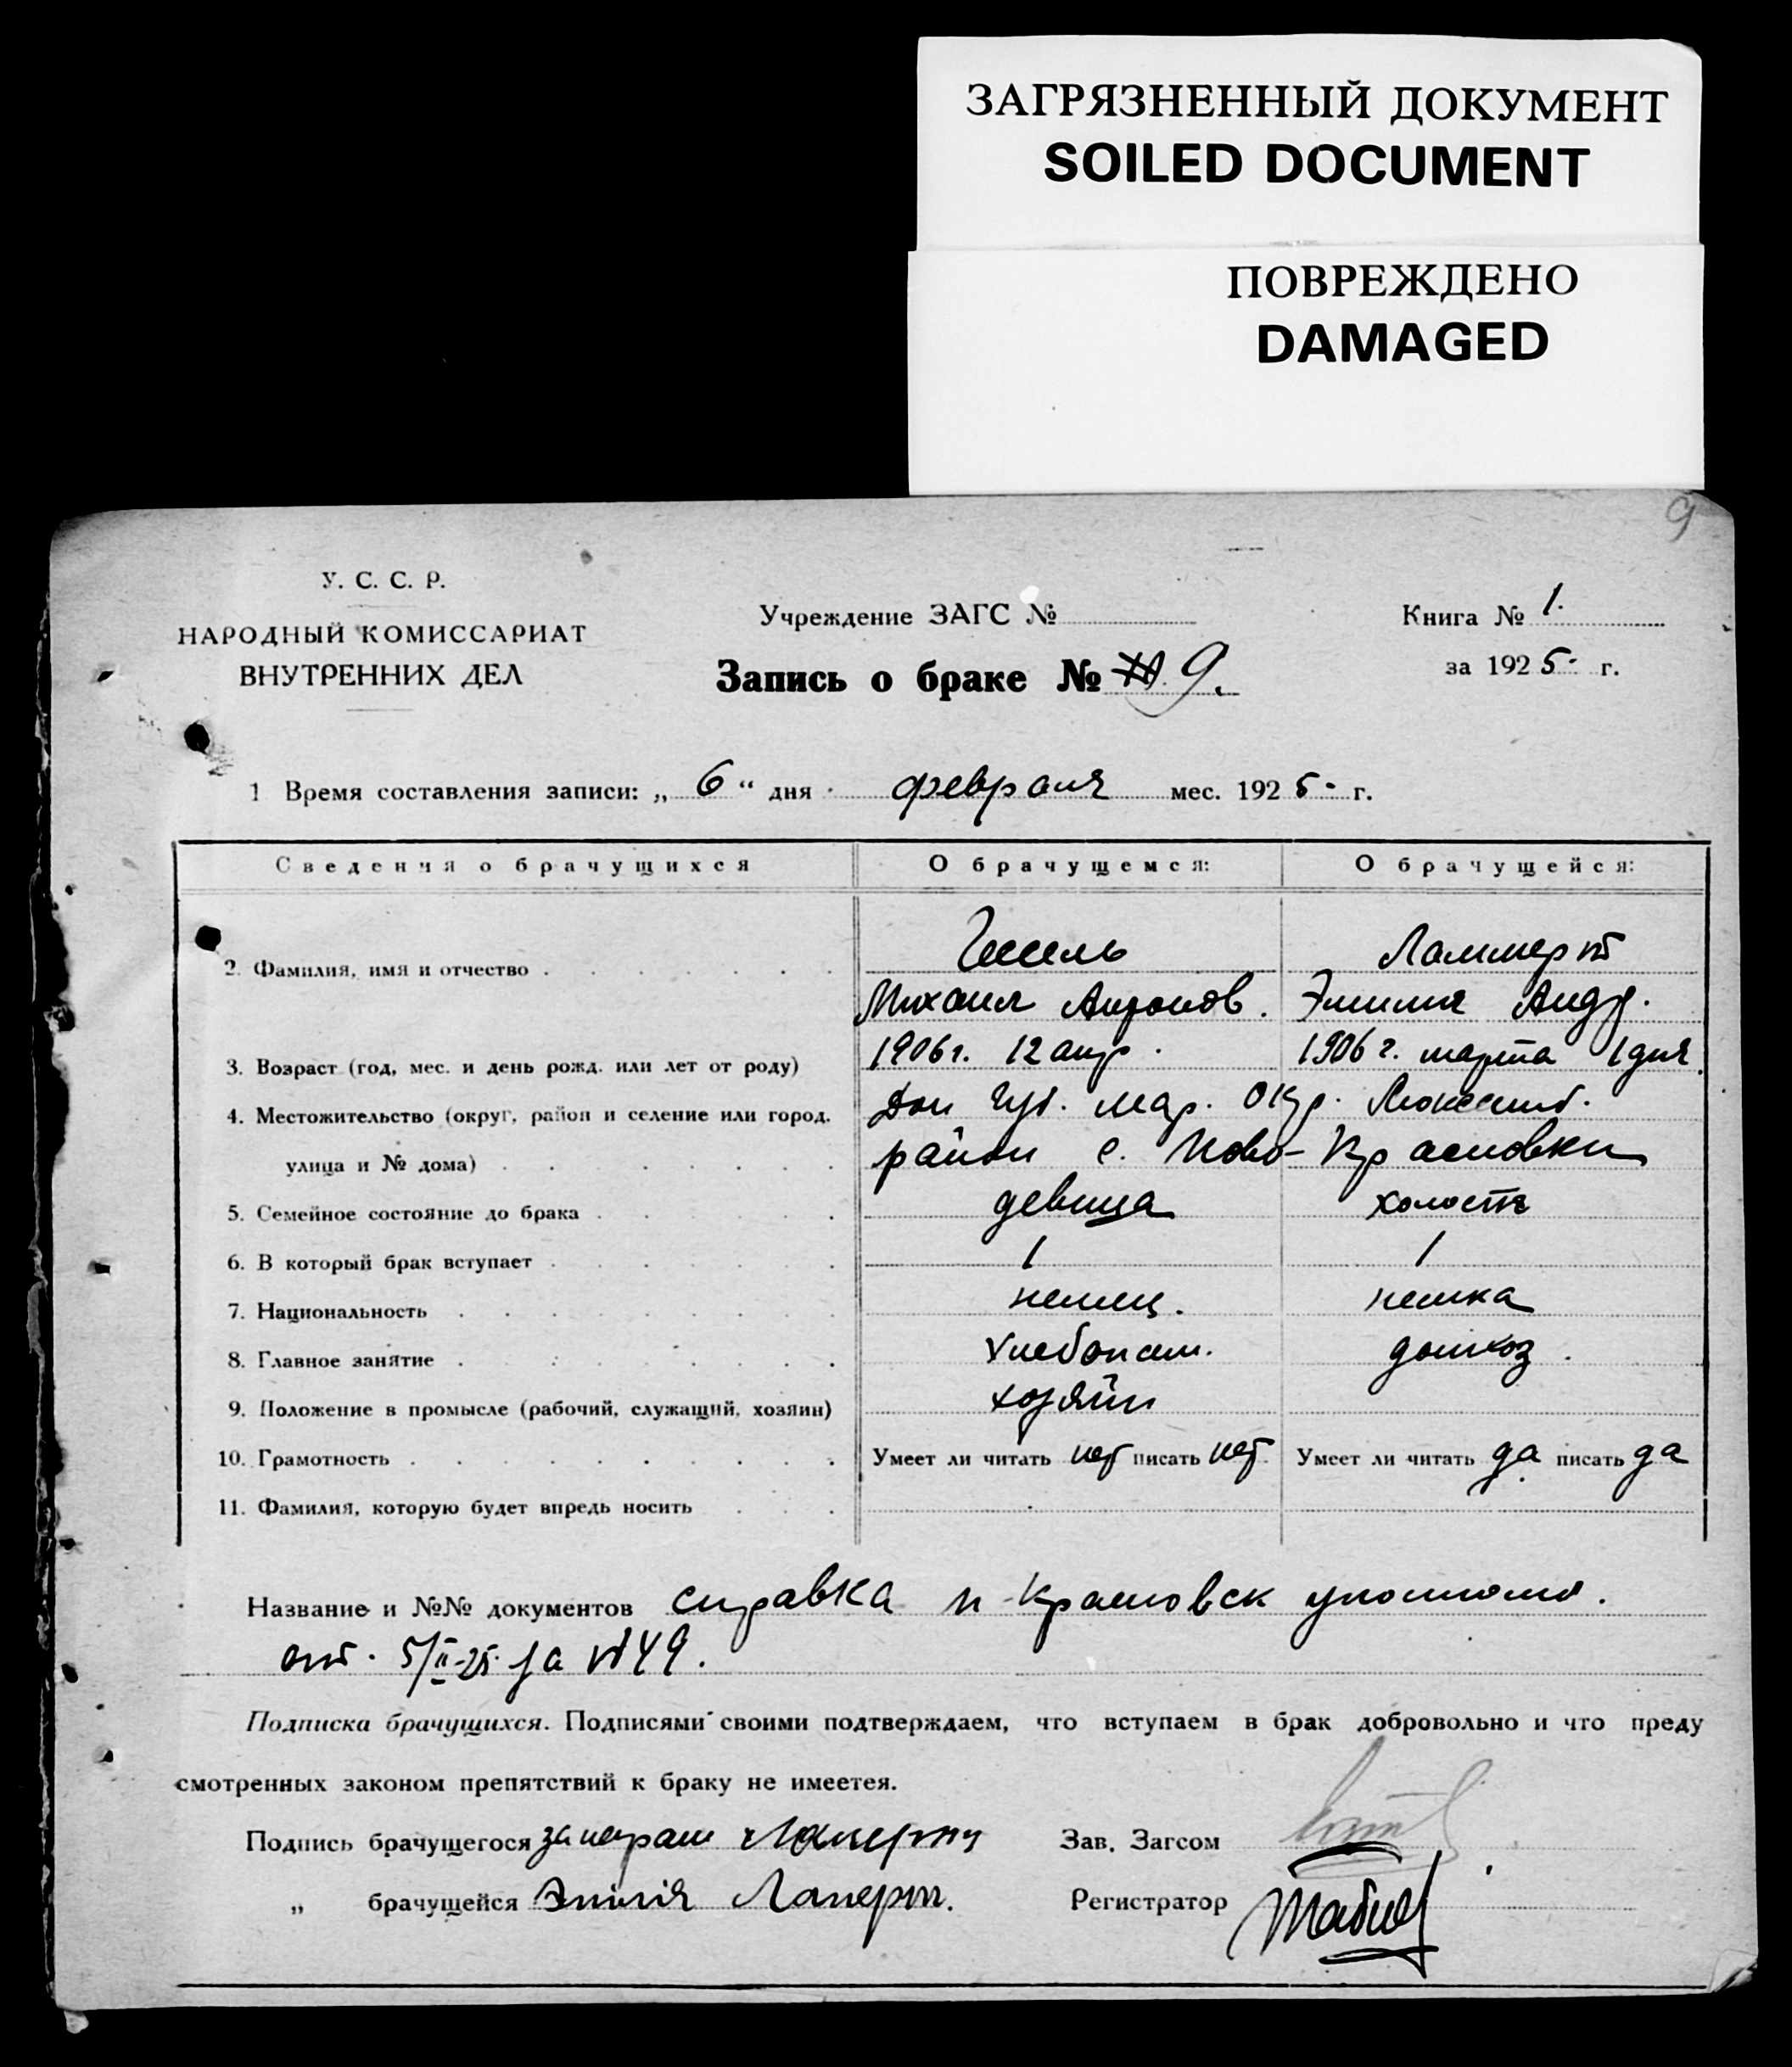 ЗАГРЯЗНЕННЫЙ ДОКУМЕНТ
SOILED DOCUMENT
ПОВРЕЖДЕНО
DAMAGED
9
У. С. С. Р.
НАРОДНЫЙ КОМИССАРИАТ
ВНУТРЕННИХ ДЕЛ
Учреждение ЗАГС №
Запись о браке № 9.
Книга № 1.
за 1925 г.
1 Время составления записи: „ 6 “ дня февраля мес. 1925 г.
Сведения о брачущихся О брачущемся: О брачущейся:
2. Фамилия, имя и отчество Гессель Ламмерт
Михаил Антонов. Эмилия Андр.
3. Возраст (год, мес. и день рожд. или лет от роду) 1906 г. 12 апр. 1906 г. марта 1 дня
4. Местожительство (округ, район и селение или город, Дон губ. мар. окр. Люксемб.
улица и № дома) район с. Ново-Красновки
5. Семейное состояние до брака девица холостя
6. В который брак вступает 1 1
7. Национальность немец. немка
8. Главное занятие хлебопаш. домхоз.
9. Положение в промысле (рабочий, служащий, хозяин) хозяйн
10. Грамотность Умеет ли читать нет писать нет. Умеет ли читать да писать да
11. Фамилия, которую будет впредь носить
Название и №№ документов справка н-Красновск
от. 5/II-25. за №49.
Подписка брачущихся. Подписями своими подтверждаем, что вступаем в брак добровольно и что преду
смотренных законом препятствий к браку не имеетея.
Подпись брачущегося за неграм Зав. Загсом
„ брачущейся Эмілія Ламерт. Регистратор